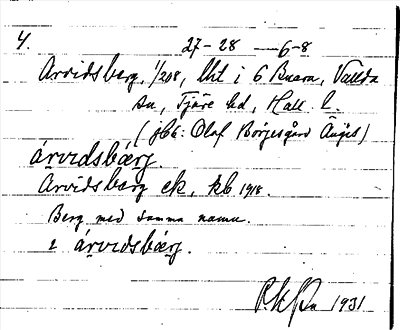 4.
27-28 — 6-8
Arvidsberg, 1/208, lht i 6 Buera, Vallda
sn, Fjäre hd, Hall. l.
(sag: Olof Börjesgård Äages)
árvidsbærj.
Arvidsberg ek, kb 1918.
Berg med samma namn.
2 árvidsbærj.
1931